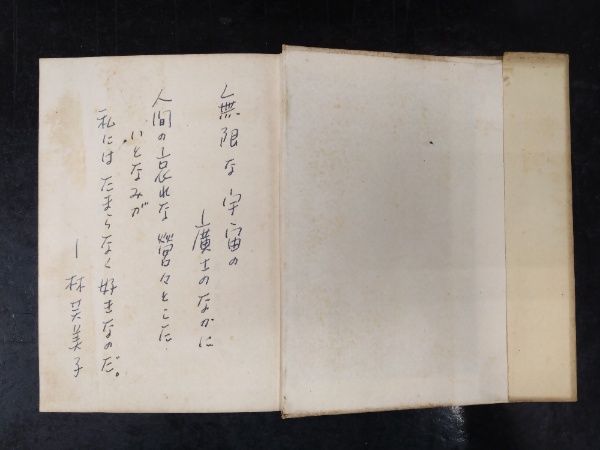 無限な宇宙の
廣土のなかに
人間の哀れな營々とした
いとなみが
私にはたまらなく好きなのだ。
ー林芙美子